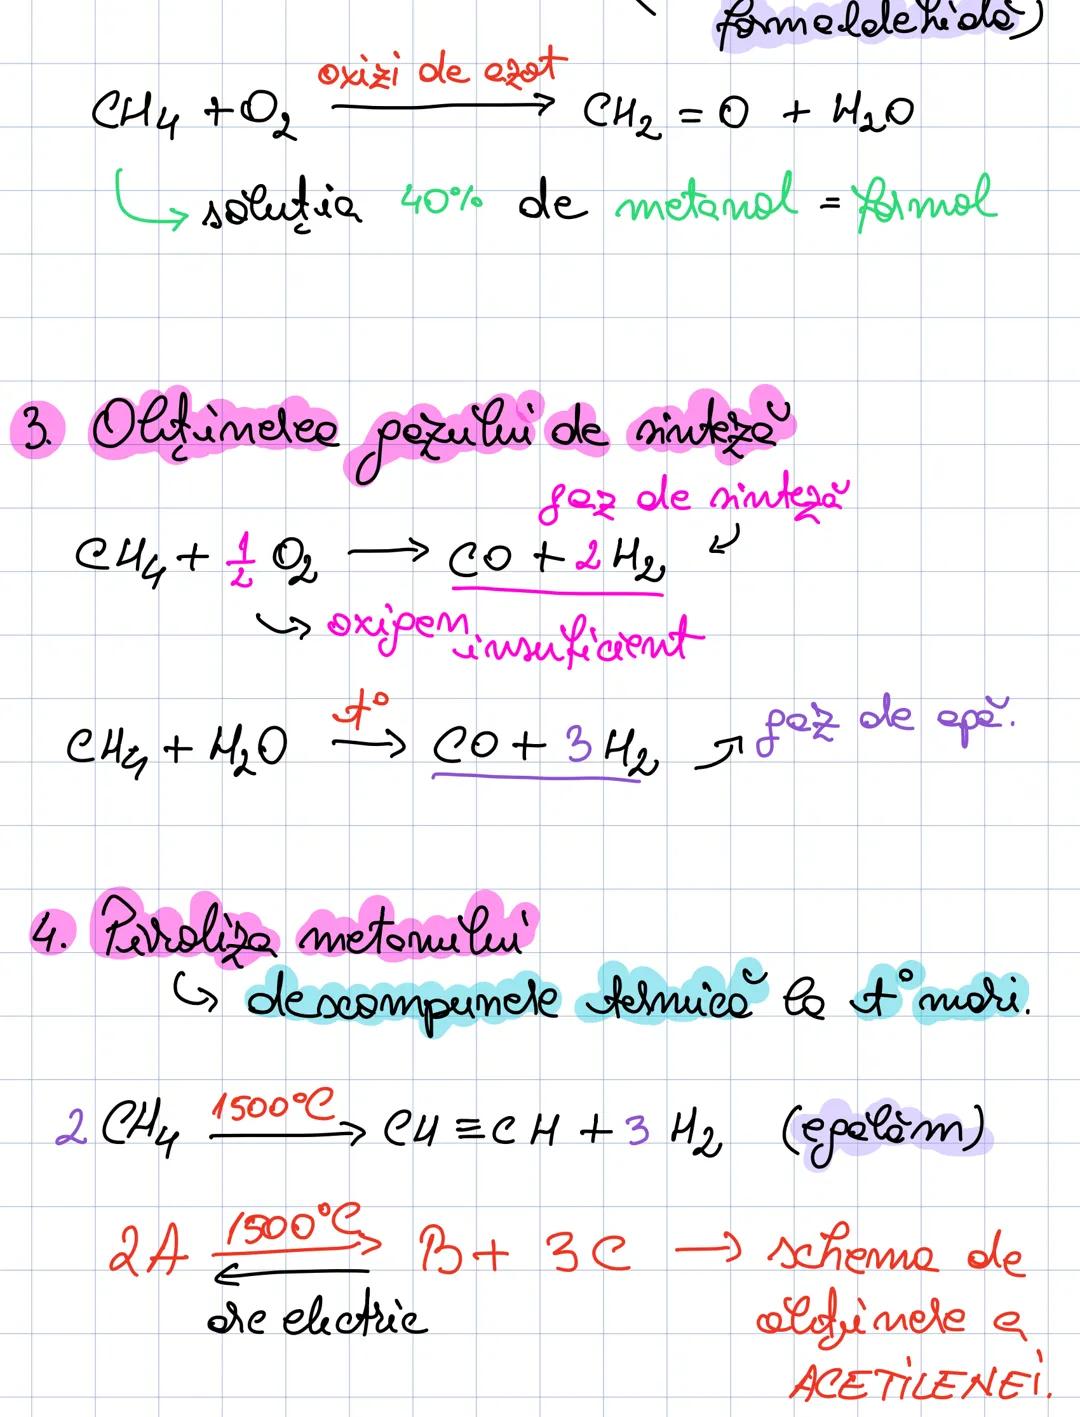 formaldehidă)
oxizi de azot
CH₄ + O₂ → CH₂ = O + H₂O
↳ soluția 40% de metanal = formol
3. Obținerea gazului de sinteză
gaz de sinteză
CH₄ + 1/2 O₂ → CO + 2 H₂ ↙
↳ oxigen insuficient
t°
CH₄ + H₂O → CO + 3 H₂ ↗ gaz de apă.
4. Piroliza metanului
↳ descompunere termică la t° mari.
1500°C
2 CH₄ → CH ≡ CH + 3 H₂ (egalăm)
1500°C
2A ⇄ B + 3C → schema de
arc electric obținere a
ACETILENEI.